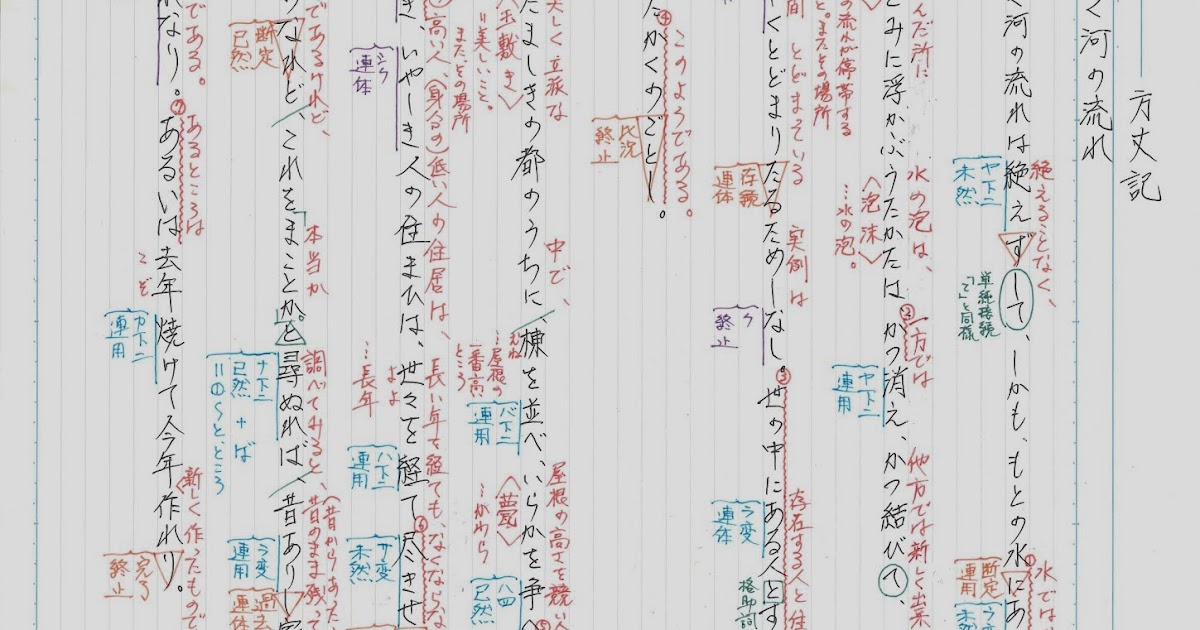 方丈記
く河の流れ
く河の流れは絶えずして、しかも、もとの水にあ
絶えることなく、
水では
ヤ下二
未然
単純接続
「て」と同様
断定
連用
ラ変
未然
とみに浮かぶうたかたは、かつ消え、かつ結びて、
んだ所に
水の泡は、
一方では
他方では新しく出来
の流れが停帯する
と。またその場所
〈泡沫〉
…水の泡。
ヤ下二
連用
くとどまりたるためしなし。世の中にある人とす
とどまっている
実例は
存在する人と住
存続
連体
ク
終止
ラ変
連体
格助詞
たかくのごとし。
このようである。
比況
終止
たましきの都のうちに、棟を並べ、いらかを争へ
美しく立派な
中で、
屋根の高さを競い
〈玉敷き〉
=美しいこと。
またその場所
むね
…屋根の
一番高い
ところ
バ下二
連用
〈甍〉
…かわら
ハ四
已然
き、いやしき人の住まひは、世々を経て尽きせ
高い人、(身分の)低い人の住居は、長い年を経ても、なくならな
シク
連体
よよ
…長年
ハ下二
連用
サ変
未然
うなれど、これをまことかと尋ぬれば、昔ありし家
であるけれど、
本当か
調べてみると、
(昔からあった、
昔のまま残って
断定
已然
ナ下二
已然+ば
=①~と、ところ
ラ変
連用
過去
連体
れなり。あるいは去年焼けて今年作れり。
である。
あるところは
新しく作ったもので
こぞ
カ下二
連用
完了
終止